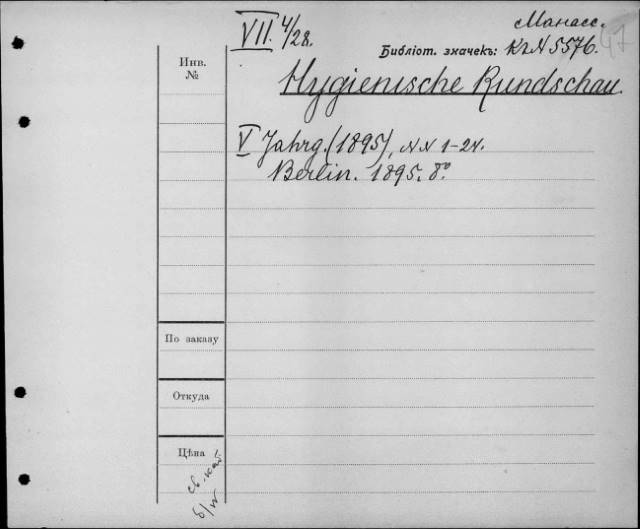 VII. 4/28.
Манасс. 47
Библіот. значекъ: Кг N 5576.
Инв.
№
Hygienische Rundschau.
V Jahrg. (1895), NN 1-24.
Berlin. 1895. 8°
По заказу
Откуда
Цѣна